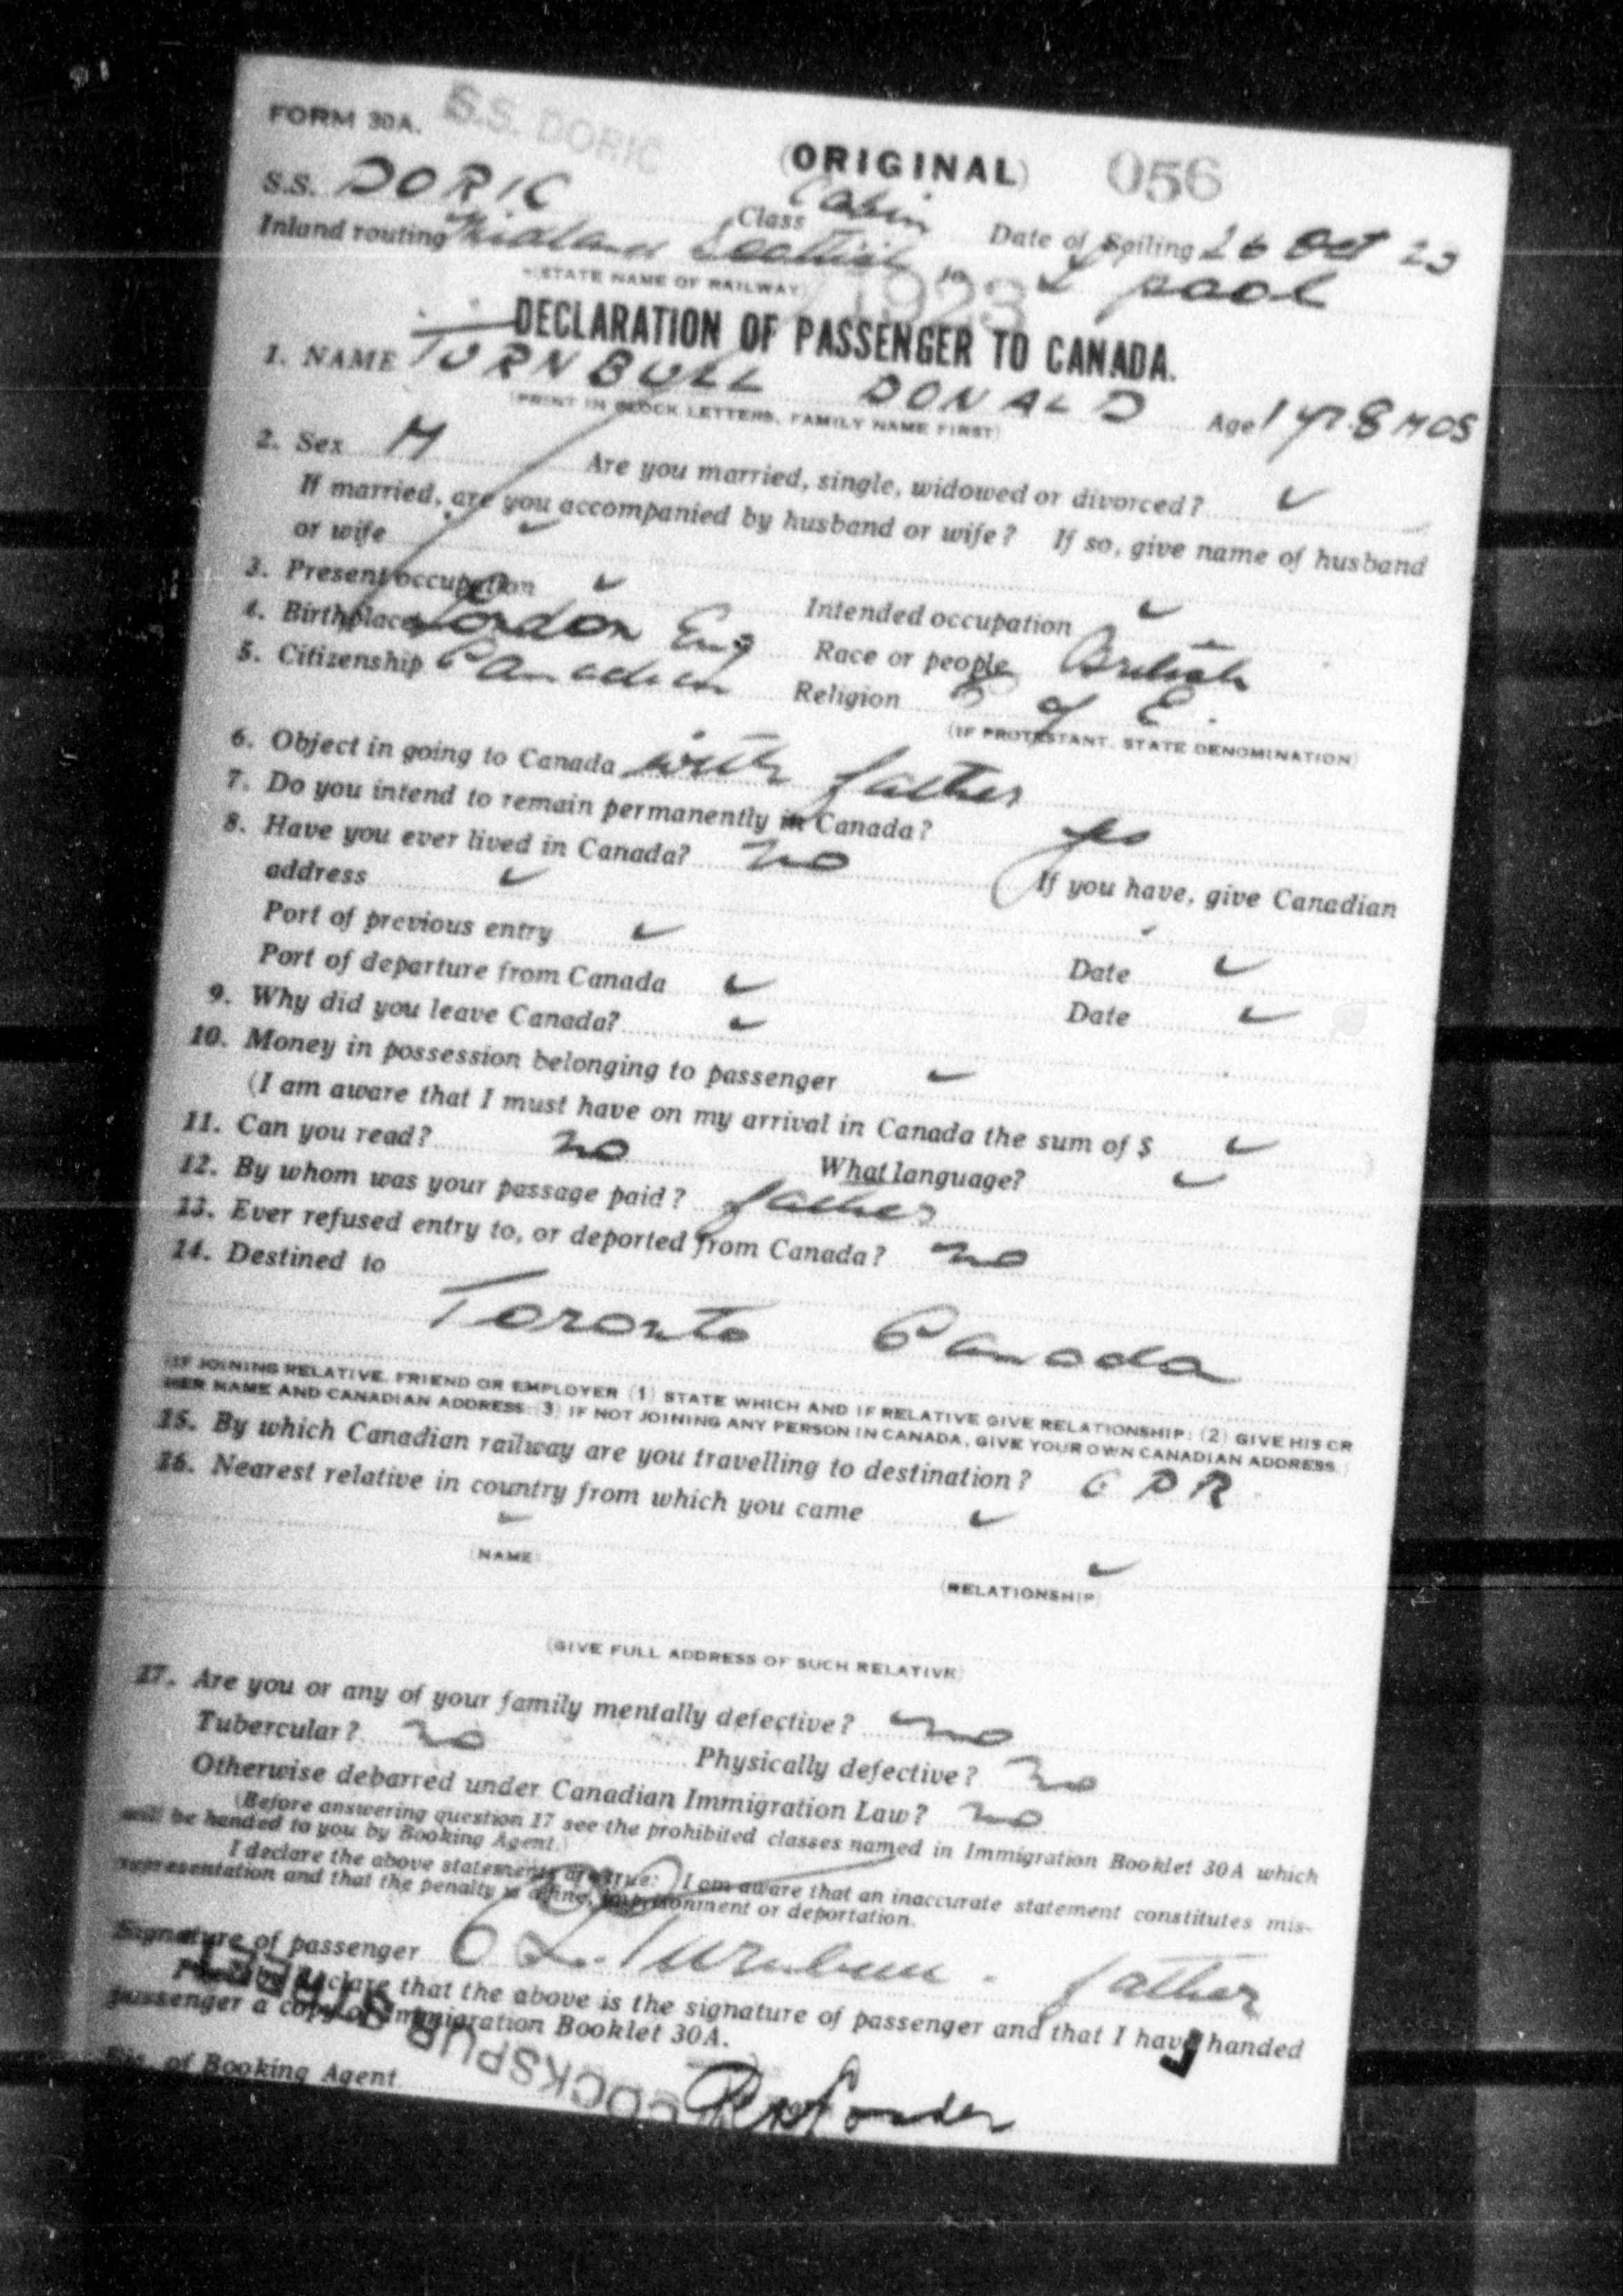 FORM 30A. S.S. DORIC
(ORIGINAL) 056
S.S. DORIC Class Cabin Date of Sailing 26 Oct 23
Inland routing Midland Scottish to L'pool
(STATE NAME OF RAILWAY) 1923
DECLARATION OF PASSENGER TO CANADA.
1. NAME TURNBULL DONALD Age 1 yr. 8 MOS
(PRINT IN BLOCK LETTERS, FAMILY NAME FIRST)
2. Sex M Are you married, single, widowed or divorced? ✓
If married, are you accompanied by husband or wife? If so, give name of husband
or wife ✓
3. Present occupation ✓ Intended occupation ✓
4. Birthplace London Eng Race or people British
5. Citizenship Canadian Religion C of E.
(IF PROTESTANT, STATE DENOMINATION)
6. Object in going to Canada with father
7. Do you intend to remain permanently in Canada? yes
8. Have you ever lived in Canada? no If you have, give Canadian
address ✓
Port of previous entry ✓ Date ✓
Port of departure from Canada ✓ Date ✓
9. Why did you leave Canada? ✓
10. Money in possession belonging to passenger ✓
(I am aware that I must have on my arrival in Canada the sum of $ ✓
11. Can you read? no What language? ✓
12. By whom was your passage paid? father
13. Ever refused entry to, or deported from Canada? no
14. Destined to
Toronto Canada
(IF JOINING RELATIVE, FRIEND OR EMPLOYER (1) STATE WHICH AND IF RELATIVE GIVE RELATIONSHIP; (2) GIVE HIS OR
HER NAME AND CANADIAN ADDRESS; (3) IF NOT JOINING ANY PERSON IN CANADA, GIVE YOUR OWN CANADIAN ADDRESS.)
15. By which Canadian railway are you travelling to destination? C P R
16. Nearest relative in country from which you came ✓
✓ ✓
(NAME) (RELATIONSHIP)
(GIVE FULL ADDRESS OF SUCH RELATIVE)
17. Are you or any of your family mentally defective? no
Tubercular? no Physically defective? no
Otherwise debarred under Canadian Immigration Law? no
(Before answering question 17 see the prohibited classes named in Immigration Booklet 30A which
will be handed to you by Booking Agent.)
I declare the above statements are true: I am aware that an inaccurate statement constitutes mis-
representation and that the penalty is a fine, imprisonment or deportation.
Signature of passenger Turnbull. father
declare that the above is the signature of passenger and that I have handed
passenger a copy of Immigration Booklet 30A.
COCKSPUR STREET
Sig. of Booking Agent